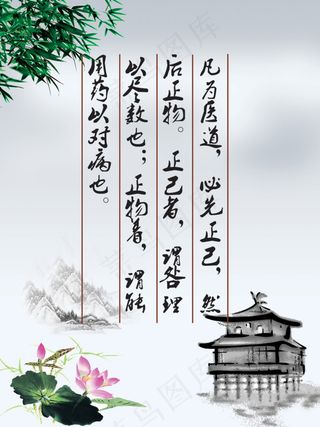 凡为医道，必先正己，然
后正物。正己者，谓明理
以尽数也；正物者，谓能
用药以对病也。